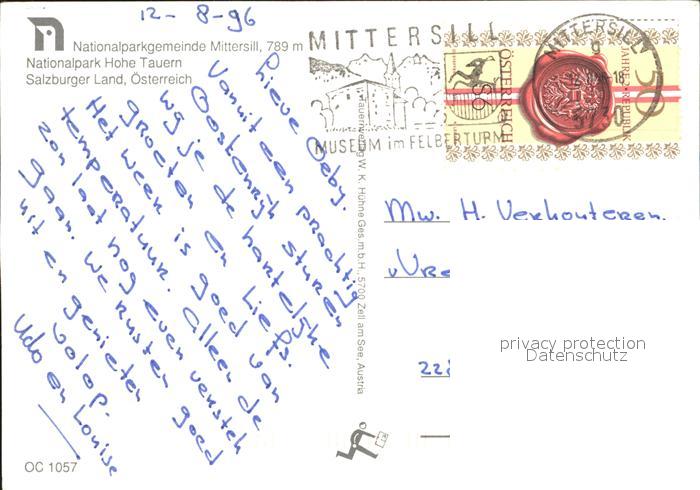 12-8-96
Nationalparkgemeinde Mittersill, 789 m
Nationalpark Hohe Tauern
Salzburger Land, Österreich
Lieve Deby.
Vanuit een prachtig
Oostenrijk sturen
wij je de hartelijke
groeten en liefs.
Het weer is goed van
temperatuur. Alleen de
zon laat nog even verstek
gaan. We rusten goed
uit en genieten
volop.
Udo en Louise
OC 1057
MITTERSILL
MUSEUM im FELBERTURM
MITTERSILL
5730
ÖSTERREICH
S6
JAHRE · REPUBLIK
50
W. K. Hühne Ges. m. b. H., 5700 Zell am See, Austria
Mw. H. Verhouteren.
privacy protection
Datenschutz